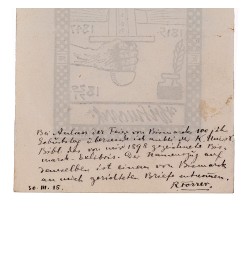 Bei Anlass der Feier von Bismarcks 100 jähr
Geburtstag übersende ich anbei der K. Univ.
Bibl. das von mir 1898 gezeichnete Bis-
marck-Exlibris. Der Namenszug auf
demselben ist einem von Bismarck
an mich gerichteten Briefe entnommen.
30. III. 15. R. Forrer.
1815
1895